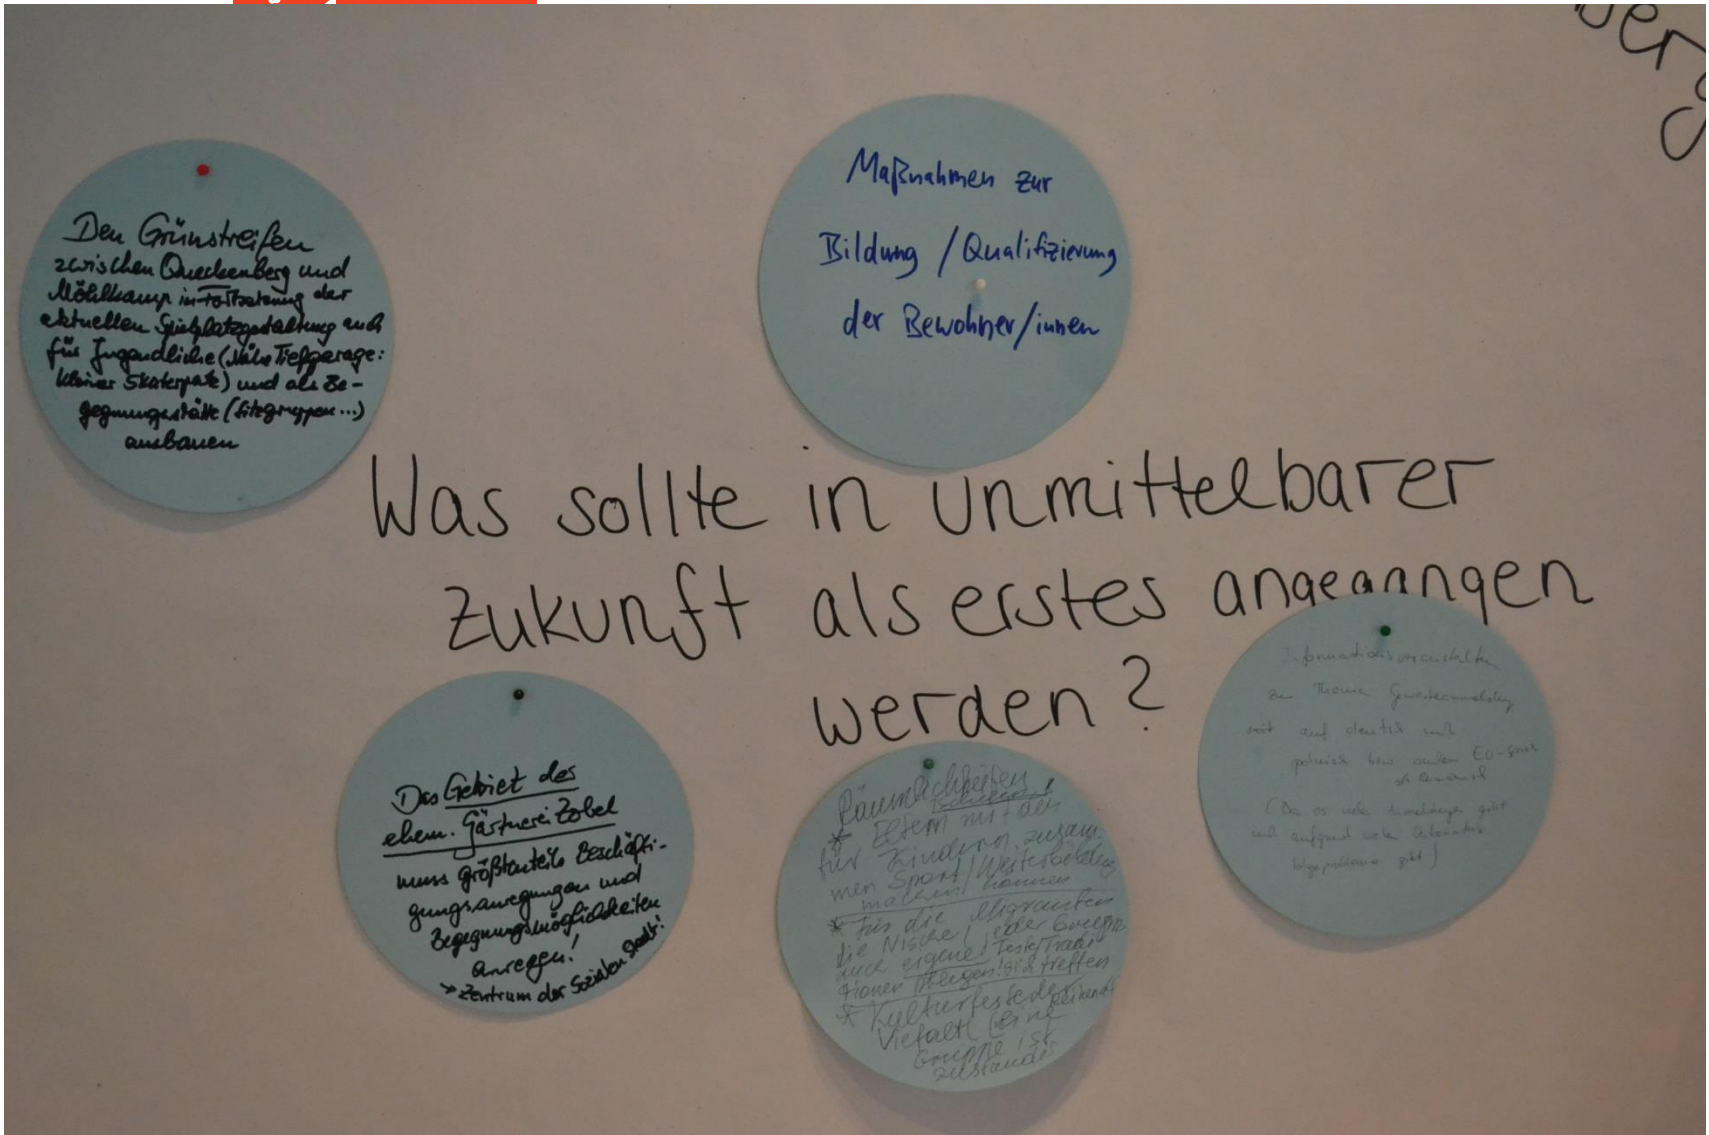 Den Grünstreifen
zwischen Queckenberg und
Möhlkamp in Fortsetzung der
aktuellen Spielplatzgestaltung auch
für Jugendliche (Nähe Tiefgarage:
kleiner Skaterpark) und als Be-
gegnungsstätte (Sitzgruppen...)
ausbauen
Maßnahmen zur
Bildung / Qualifizierung
der Bewohner/innen
Was sollte in unmittelbarer
Zukunft als erstes angegangen
werden?
Das Gebiet der
ehem. Gärtnerei Zobel
muss größtenteils Beschäfti-
gungsanregungen und
Begegnungsmöglichkeiten
anregen!
→ Zentrum der Sozialen Stadt!
Räumlichkeiten
* Eltern mit den
für Kindern zusam-
men Sport/Weiterbildung
machen können
* Für die Migranten
die Nische, jeder Gruppe
auch eigene Feste/Tradi-
tionen pflegen! sich treffen
* Kulturfeste der
Viefalt (eine
Gruppe ist
Informationsveranstalten
zum Thema Gewerbeanmeldung
auf deutsch und
polnisch bzw anderen EU-
(Da es viele gibt
und aufgrund
gibt)